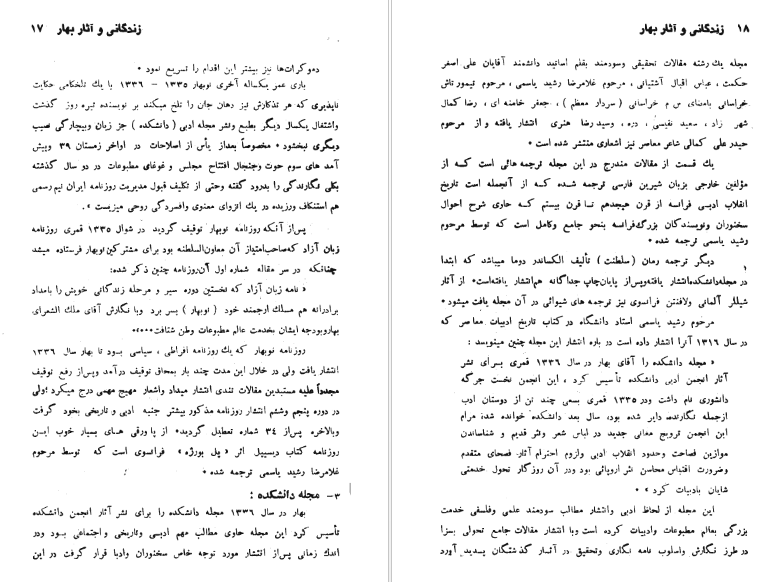 زندگانی و آثار بهار ۱۷
دموکرات‌ها نیز بیشتر این اقدام را تسریع نمود •
باری عمر یکساله آخری نوبهار ۱۳۳۵ – ۱۳۳۶ با یك تلخکامی حکایت
ناپذیری که هر تذکارش نیز دهان جان را تلخ میکند بر نویسنده تیره روز گذشت
واشتغال یکسال دیگر بطبع ونشر مجله ادبی ( دانشکده ) جز زیان وبیچارگی نصیب
دیگری نبخشود • مخصوصاً بعداز یأس از اصلاحات در اواخر زمستان ۳۹ وپیش
آمد های سوم حوت وجنجال افتتاح مجلس و غوغای مطبوعات در دو سال گذشته
بکلی نگارندگی را بدرود گفته وحتی از تکلیف قبول مدیریت روزنامه ایران نیم رسمی
هم استنکاف ورزیده در یك انزوای معنوی وافسردگی روحی میزیست » •
پس‌از آنکه روزنامه نوبهار توقیف گردید در شوال ۱۳۳۵ قمری روزنامه
زبان آزاد که‌صاحب‌امتیاز آن معاون‌السلطنه بود برای مشترکین نوبهار فرستاده میشد
چنانکه در سر مقاله شماره اول آن‌روزنامه چنین ذکر شده:
« نامه زبان آزاد که نخستین دوره سیر و مرحله زندگانی خویش را بامداد
برادرانه هم مسلك ارجمند خود ( نوبهار ) بسر برد وبا نگارش آقای ملك الشعرای
بهاروبدوجه ایشان بخدمت عالم مطبوعات وطن شتافت....»
روزنامه نوبهار که یك روزنامه افراطی ، سیاسی بود تا بهار سال ۱۳۳۶
انتشار یافت ولی در خلال این مدت چند بار بمحاق توقیف درآمد وپس‌از رفع توقیف
مجدداً علیه مستبدین مقالات تندی انتشار میداد واشعار مهیج مهمی درج میکرد؛ولی
در دوره پنجم وششم انتشار روزنامه مذکور بیشتر جنبه ادبی و تاریخی بخود گرفت
وبالاخره پس‌از ۳٤ شماره تعطیل گردید• از پاورقی های بسیار خوب ایسن
روزنامه کتاب دیسیپل اثر « پل بورژه » فرانسوی است که توسط مرحوم
غلامرضا رشید یاسمی ترجمه شده •
۳– مجله دانشکده :
بهار در سال ۱۳۳۶ مجله دانشکده را برای نشر آثار انجمن دانشکده
تأسیس کرد این مجله حاوی مطالب مهم ادبی وتاریخی و اجتماعی بود ودر
اندك زمانی پس‌از انتشار مورد توجه خاص سخنوران وادبا قرار گرفت در این
۱۸ زندگانی و آثار بهار
مجله یك رشته مقالات تحقیقی وسودمند بقلم اساتید دانشمند آقایان علی اصغر
حکمت ، عباس اقبال آشتیانی ، مرحوم غلامرضا رشید یاسمی ، مرحوم تیمورتاش
خراسانی بامضای س م خراسانی ( سردار معظم ) ، جعفر خامنه ای ، رضا کمال
شهر زاد ، سعید نفیسی ، دره ، وسید رضا هنری انتشار یافته و از مرحوم
حیدر علی کمالی شاعر معاصر نیز اشعاری منتشر شده است •
یك قسمت از مقالات مندرج در این مجله ترجمه هائی است که از
مؤلفین خارجی بزبان شیرین فارسی ترجمه شده که از آنجمله است تاریخ
انقلاب ادبسی فرانسه از قرن هیجدهم تا قرن بیستم که حاوی شرح احوال
سخنوران ونویسندگان بزرگ‌فرانسه بنحو جامع وکامل است که توسط مرحوم
رشید یاسمی ترجمه شده •
دیگر ترجمه رمان (سلطنت) تألیف الکساندر دوما میباشد که ابتدا
در مجله‌دانشکده‌انتشار یافته‌وپس‌از پایان‌چاپ جداگانه هم‌انتشار یافته‌است۱ از آثار
شیللر آلمانی ولافنتن فرانسوی نیز ترجمه های شیوائی در آن مجله یافت میشود•
مرحوم رشید یاسمی استاد دانشگاه در کتاب تاریخ ادبیات معاصر که
در سال ۱۳۱۶ آنرا انتشار داده است در باره انتشار این مجله چنین مینویسد :
« مجله دانشکده را آقای بهار در سال ۱۳۳۶ قمری بسرای نشر
آثار انجمن ادبی دانشکده تأسیس کرد ، این انجمن نخست جرگه
دانشوری نام داشت ودر ۱۳۳۵ قمری بسعی چند تن از دوستان ادب
ازجمله نگارنده دایر شده بود، سال بعد دانشکده خوانده شد، مرام
این انجمن ترویج معانی جدید در لباس شعر ونثر قدیم و شناساندن
موازین فصاحت وحدود انقلاب ادبی ولزوم احترام آثار فصحای متقدم
وضرورت اقتباس محاسن نثر اروپائی بود ودر آن روزگار تحول خدمتی
شایان بادبیات کرد » •
این مجله از لحاظ ادبی وانتشار مطالب سودمند علمی وفلسفی خدمت
بزرگی بعالم مطبوعات وادبیات کرده است وبا انتشار مقالات جامع تحولی بسزا
در طرز نگارش واسلوب نامه نگاری وتحقیق در آثار گذشتگان پدید آورد